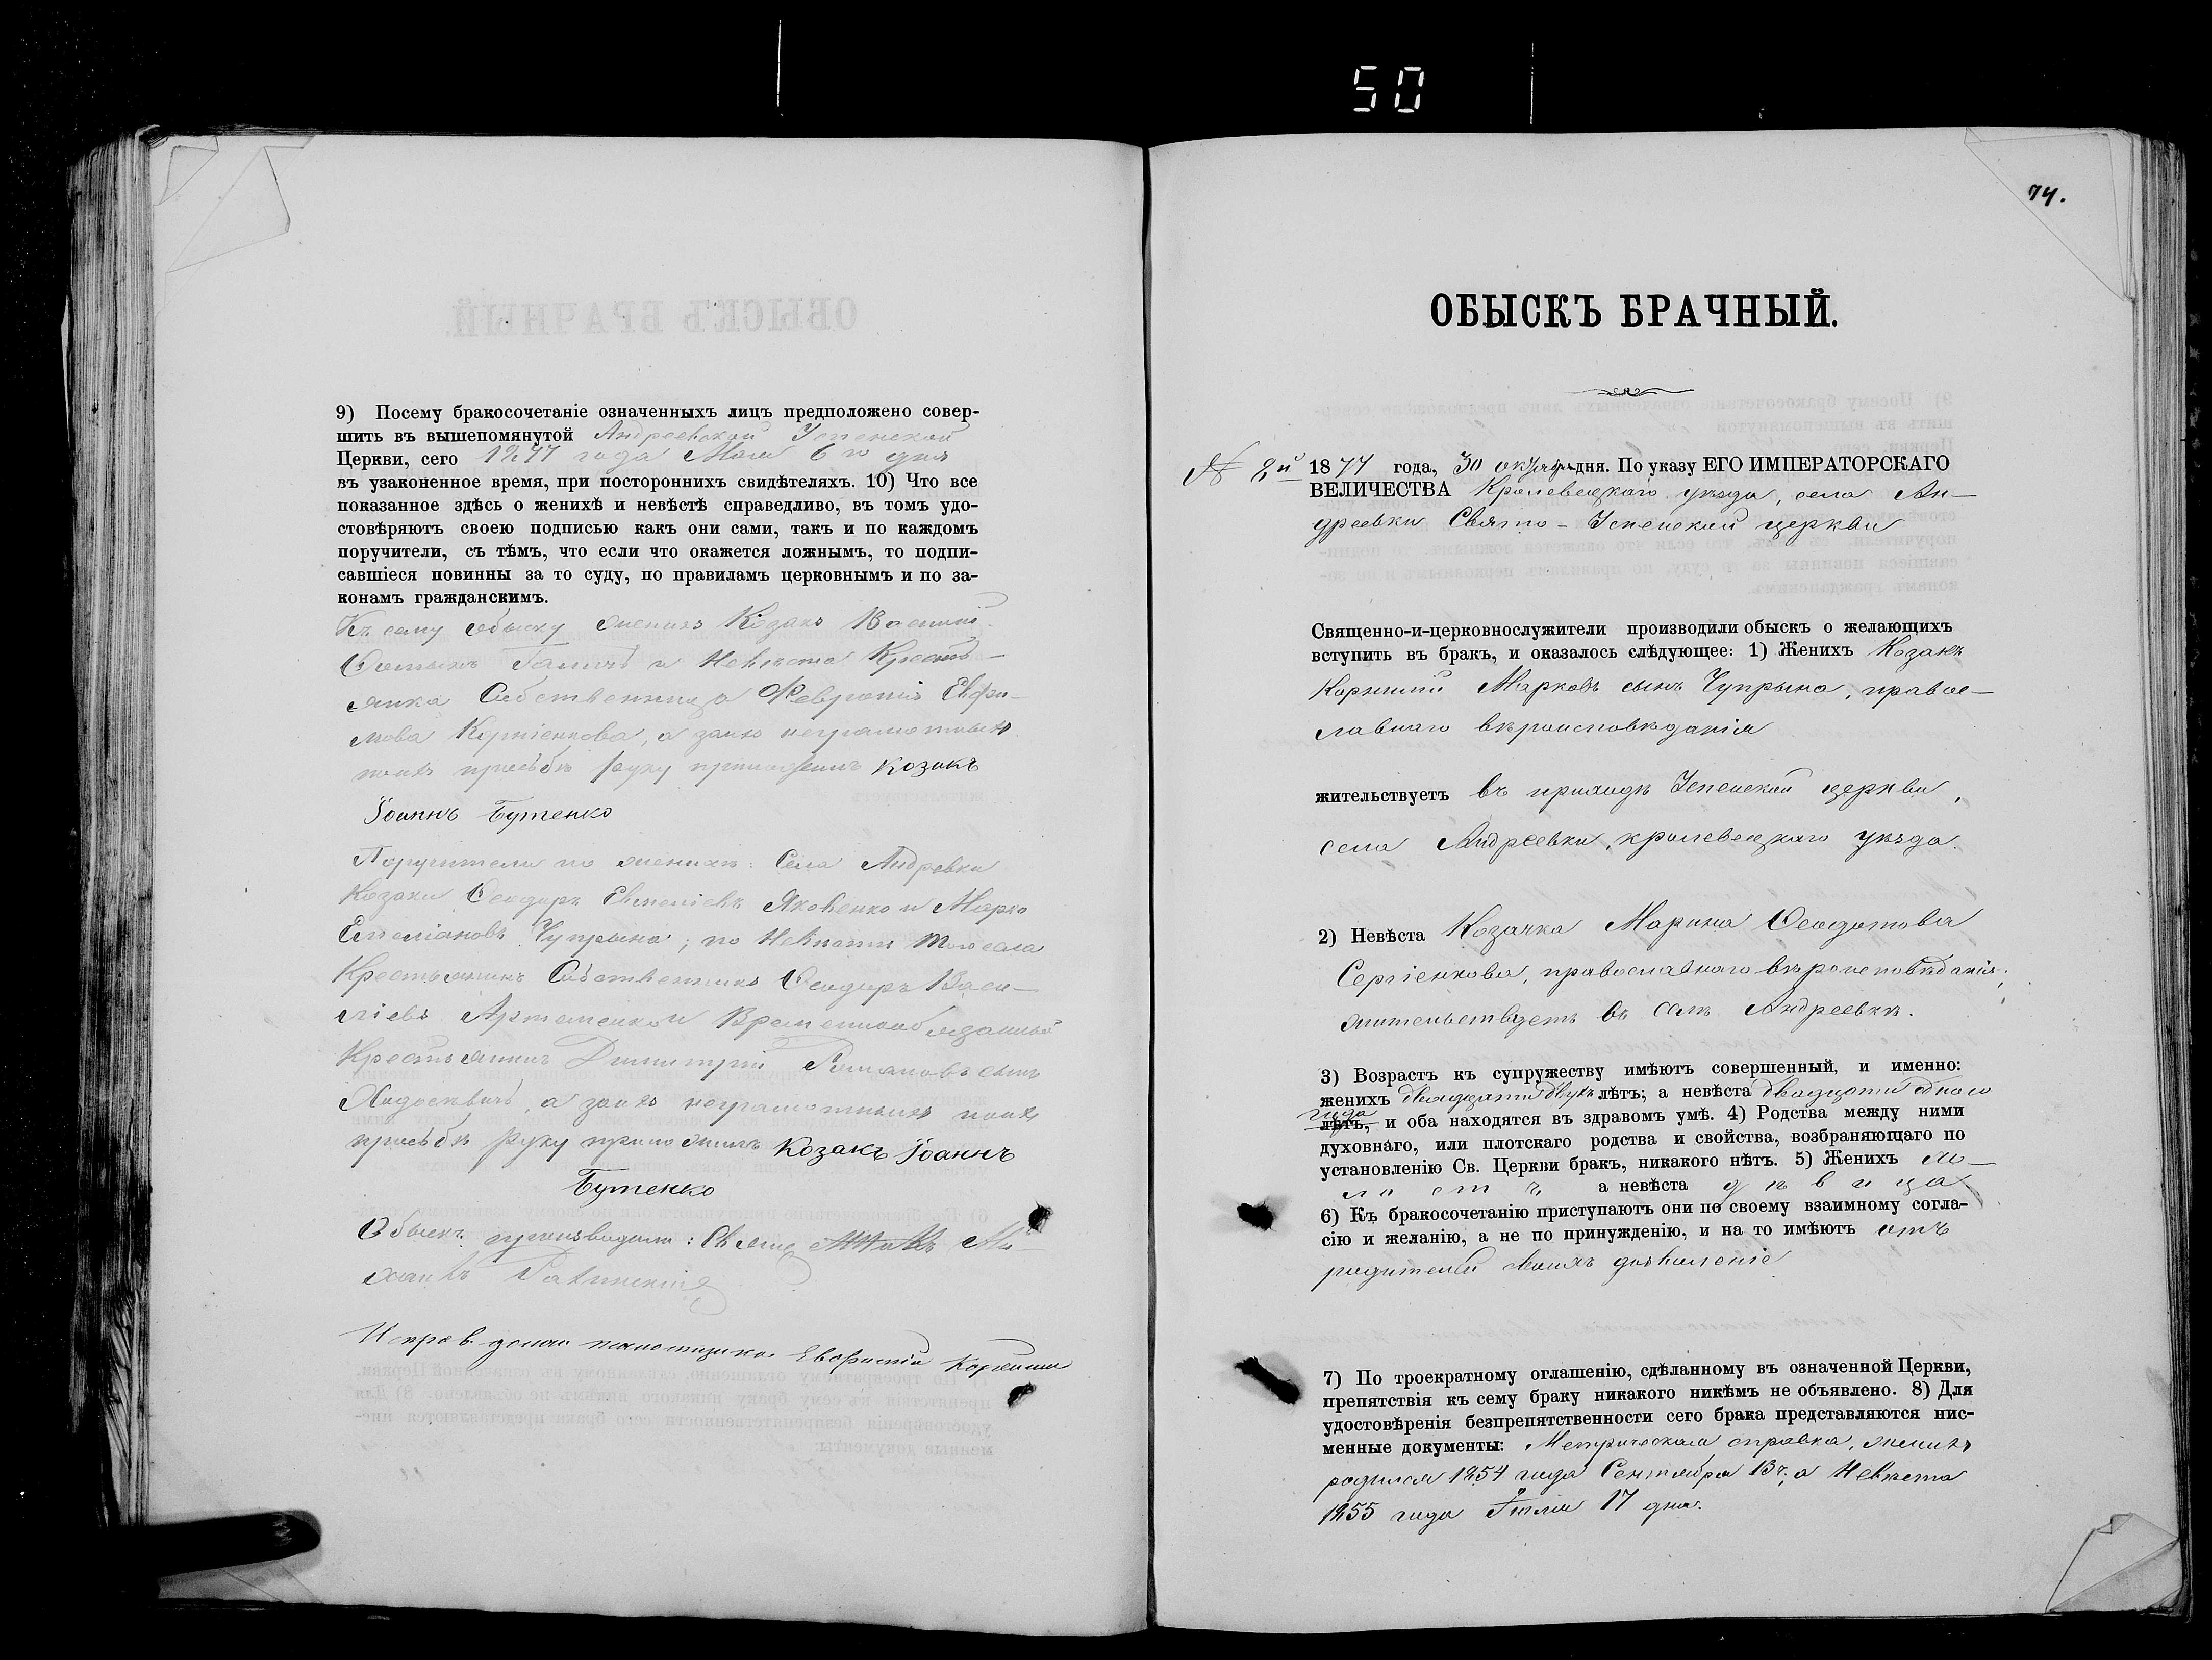 50
9) Посему бракосочетаніе означенныхъ лицъ предположено совер-
шить въ вышепомянутой Андреевской Успенской
Церкви, сего 1877 года Мая 6 го дня
въ узаконенное время, при постороннихъ свидѣтеляхъ. 10) Что все
показанное здѣсь о женихѣ и невѣстѣ справедливо, въ томъ удо-
стовѣряютъ своею подписью какъ они сами, такъ и по каждомъ
поручители, съ тѣмъ, что если что окажется ложнымъ, то подпи-
савшіеся повинны за то суду, по правиламъ церковнымъ и по за-
конамъ гражданскимъ.
Къ сему обыску женихъ Козакъ
и невѣста Кресть-
янка Собственница Февронія Евфи-
мова а за нихъ неграмотныхъ
по ихъ просьбѣ руку приложилъ Козакъ
Іоаннъ Бутенко
Поручители по женихѣ: Села Андревки
Козаки Ѳеодоръ Яковенко и Марко
Емеліановъ Чупрына; по Невѣсти того села
Крестьянинъ Собственникъ Ѳеодоръ Васи-
ліевъ Артеменко и Временнообязанный
Крестьянинъ Димитрій Романовъ сынъ
а за ихъ неграмотныхъ по ихъ
просьбѣ руку приложилъ Козакъ Іоаннъ
Бутенко
Обыскъ производили: Свящ Ми-
хаилъ
74.
ОБЫСКЪ БРАЧНЫЙ.
№ 8й 1877 года, 30 октября дня. По указу ЕГО ИМПЕРАТОРСКАГО
ВЕЛИЧЕСТВА Кролевецкаго уѣзда, села Ан-
дреевки Свято-Успенской церкви
Священно-и-церковнослужители производили обыскъ о желающихъ
вступить въ бракъ, и оказалось слѣдующее: 1) Женихъ Козакъ
Корнилій Марковъ сынъ Чупрына, правос-
лавнаго вѣроисповѣданія
жительствуетъ въ приходѣ Успенской церкви,
села Андреевки, кролевецкаго уѣзда.
2) Невѣста Козачка Марина Ѳеодотова
Сергіенкова, православнаго вѣроисповѣданія;
жительствуетъ въ селѣ Андреевкѣ.
3) Возрастъ къ супружеству имѣютъ совершенный, и именно:
женихъ двадцати двухъ лѣтъ; а невѣста двадцати одного
года
лѣтъ, и оба находятся въ здравомъ умѣ. 4) Родства между ними
духовнаго, или плотскаго родства и свойства, возбраняющаго по
установленію Св. Церкви бракъ, никакого нѣтъ. 5) Женихъ хо-
лостъ а невѣста дѣвица
6) Къ бракосочетанію приступаютъ они по своему взаимному согла-
сію и желанію, а не по принужденію, и на то имѣютъ отъ
родителей своихъ дозволеніе
7) По троекратному оглашенію, сдѣланному въ означенной Церкви,
препятствія къ сему браку никакого никѣмъ не объявлено. 8) Для
удостовѣренія безпрепятственности сего брака представляются пис-
менные документы: Метрическая справка, женихъ
родился 1854 года Сентября 13 ч. а Невѣста
1855 года Іюлія 17 дня.